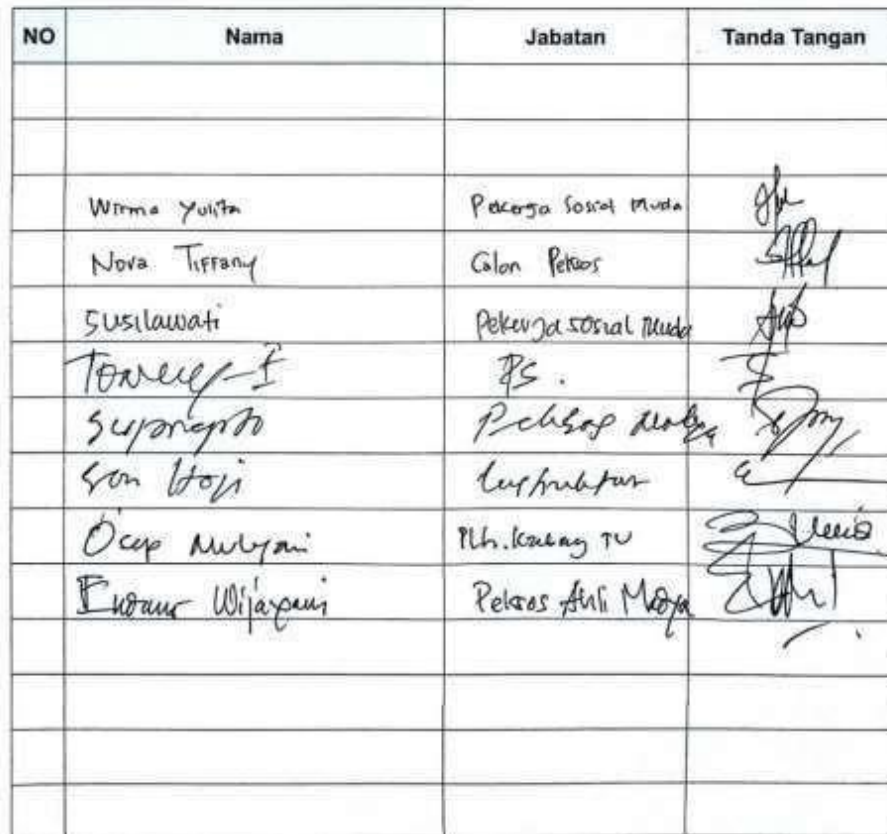 NO Nama Jabatan Tanda Tangan
Wirma Yulita Pekerja Sosial Muda
Nova Tiffany Calon Peksos
Susilawati Pekerja Sosial Muda
PS.
Suprapto
Son Haji
Ocep Mulyani Plh. Kabag TU
Wijayani Peksos Ahli Madya